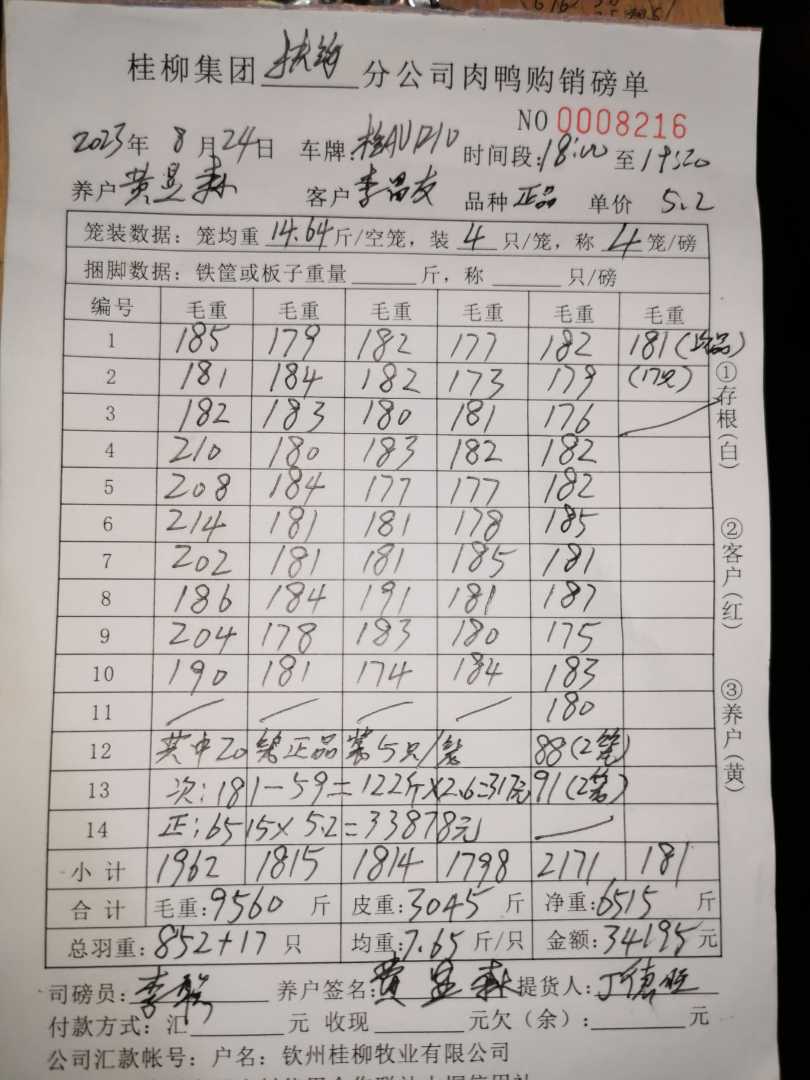 桂柳集团 扶绥 分公司肉鸭购销磅单
NO 0008216
2023年 8月24日 车牌: 时间段:18:00至19:20
养户 黄显森 客户 李昌友 品种 正品 单价 5.2
笼装数据：笼均重 14.64 斤/空笼，装 4 只/笼，称 4 笼/磅
捆脚数据：铁筐或板子重量 斤，称 只/磅
编号 毛重 毛重 毛重 毛重 毛重 毛重
1 185 179 182 177 182 181(次品)
2 181 184 182 173 179 (17只)
3 182 183 180 181 176
4 210 180 183 182 182
5 208 184 177 177 182
6 214 181 181 178 185
7 202 181 181 185 181
8 186 184 191 181 187
9 204 178 183 180 175
10 190 181 174 184 183
11 / / / / 180
12 其中20笼正品装5只/笼 88(2笼)
13 次:181-59=122斤×2.6=317元 91(2笼)
14 正:6515×5.2=33878元 —
小计 1962 1815 1814 1798 2171 181
合计 毛重:9560 斤 皮重:3045 斤 净重:6515 斤
总羽重:852+17 只 均重:7.65 斤/只 金额:34195 元
司磅员: 养户签名:黄显森 提货人:
付款方式：汇 元 收现 元欠（余）： 元
公司汇款帐号：户名：钦州桂柳牧业有限公司
①存根(白)
②客户(红)
③养户(黄)